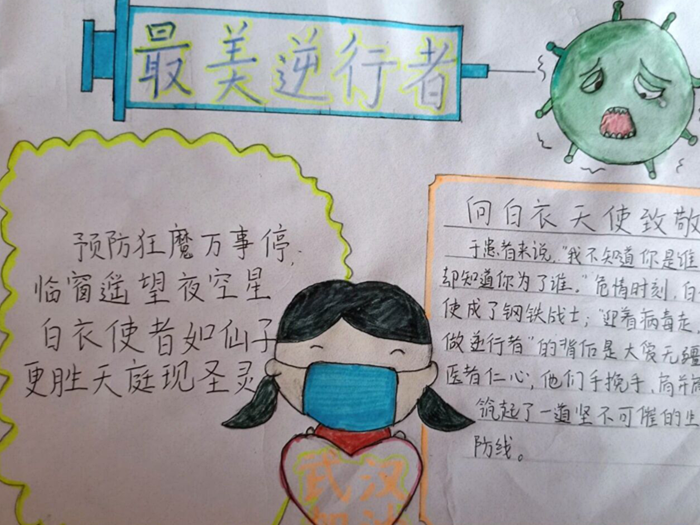 最美逆行者
预防狂魔万事停,
临窗遥望夜空星
白衣使者如仙子
更胜天庭现圣灵
向白衣天使致敬
于患者来说,“我不知道你是谁
却知道你为了谁。”危情时刻,白
使成了钢铁战士;“迎着病毒走
做逆行者”的背后是大爱无疆
医者仁心,他们手挽手、肩并肩
筑起了一道坚不可催的生
防线。
武汉
加油